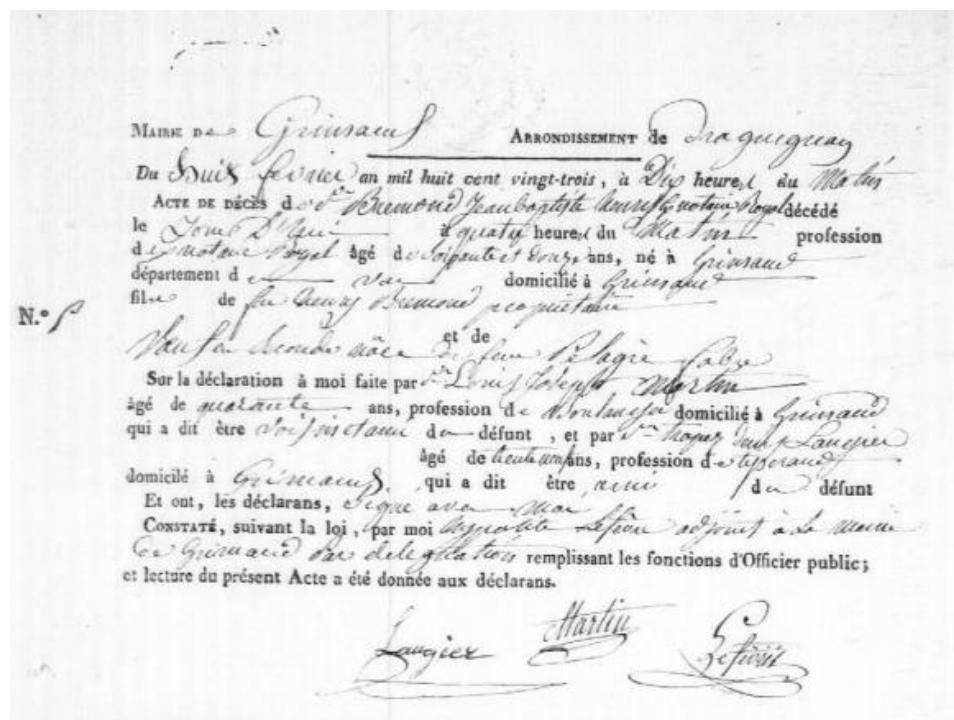 MAIRIE DE Grimaud ARRONDISSEMENT de Draguignan
Du huit février an mil huit cent vingt-trois, à Dix heures du Matin
ACTE DE DÉCÈS de Sr Bremond Jean baptiste notaire Royal décédé
le Jour D'hier à quatre heures du Matin profession
de notaire Royal âgé de soixante et douze ans, né à Grimaud
département de var domicilié à Grimaud
fils de feu Bremond propriétaire
N.°
et de
Veuf en seconde nôce de feue Pelagie fabre
Sur la déclaration à moi faite par Sr Louis Joseph Martin
âgé de quarante ans, profession de domicilié à Grimaud
qui a dit être voisin et ami du défunt, et par Sr tropez Laugier
âgé de trente neuf ans, profession de tisserand
domicilé à Grimaud qui a dit être ami du défunt
Et ont, les déclarans, signé avec moi
CONSTATÉ, suivant la loi, par moi adjoint à la mairie
de Grimaud par délégation remplissant les fonctions d'Officier public;
et lecture du présent Acte a été donnée aux déclarans.
Laugier Martin